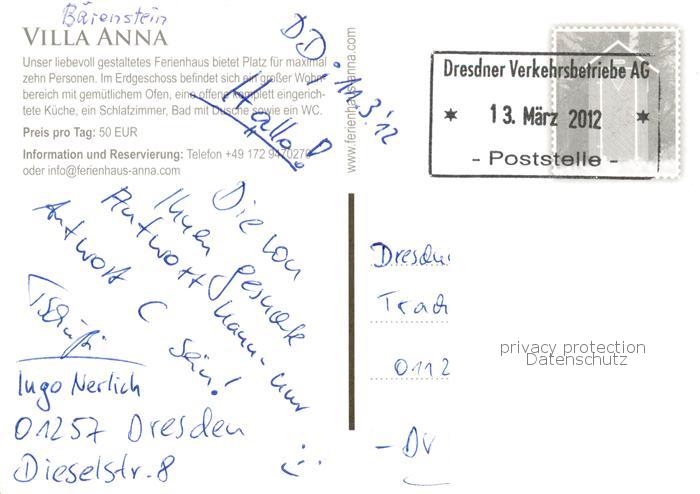 Bärenstein
VILLA ANNA
Unser liebevoll gestaltetes Ferienhaus bietet Platz für maximal
zehn Personen. Im Erdgeschoss befindet sich ein großer Wohn-
bereich mit gemütlichem Ofen, eine offene komplett eingerich-
tete Küche, ein Schlafzimmer, Bad mit Dusche sowie ein WC.
Preis pro Tag: 50 EUR
Information und Reservierung: Telefon +49 172 9470270
oder info@ferienhaus-anna.com
DD. 11.3.'12
Hallo!
Die von
Ihnen gesuchte
Antwort kann nur
Antwort C sein!
Tschüß
Ingo Nerlich
01257 Dresden
Dieselstr. 8
www.ferienhaus-anna.com
Dresdner Verkehrsbetriebe AG
* 13. März 2012 *
- Poststelle -
Dresdn
Trach
0112
- DV
privacy protection
Datenschutz